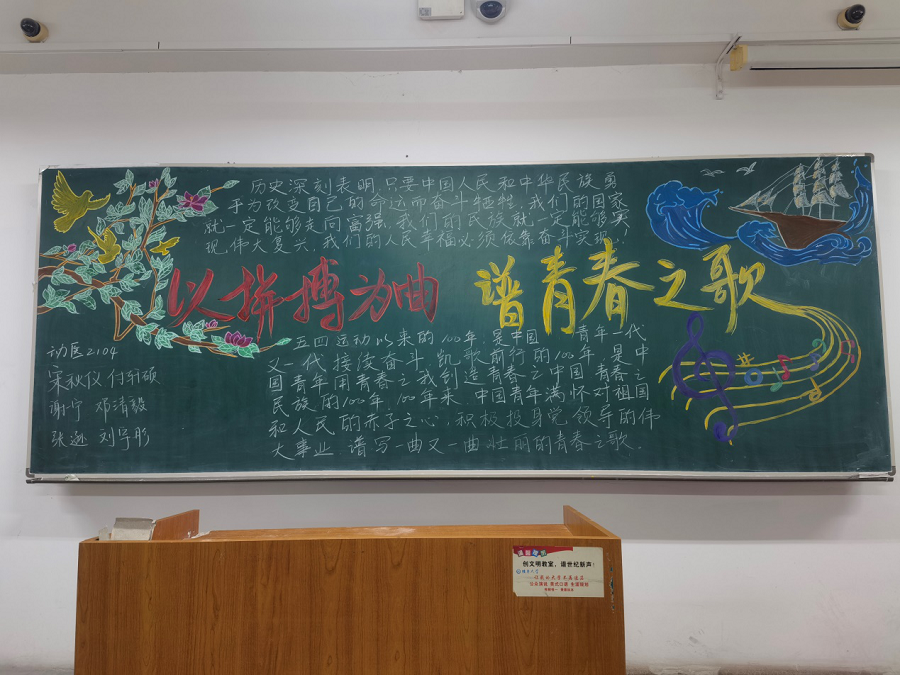 历史深刻表明,只要中国人民和中华民族勇
于为改变自己的命运而奋斗牺牲,我们的国家
就一定能够走向富强,我们的民族就一定能够实
现伟大复兴,我们的人民幸福必须依靠奋斗实现.
以拼搏为曲 谱青春之歌
五四运动以来的100年 是中国 青年一代
又一代接续奋斗 凯歌前行的100年,是中
国青年用青春之我创造青春之中国 青春之
民族的100年 100年来 中国青年满怀对祖国
和人民的赤子之心,积极投身党领导的伟
大事业 谱写一曲又一曲壮丽的青春之歌.
动医2104
宋秋仪 付轩硕
谢宁 邓清毅
张逊 刘宇彤
创文明教室,谱世纪新声!